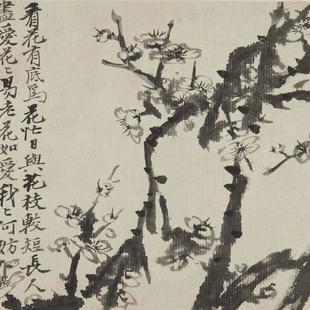 看花有底為花忙日與花枝較短長人
盡愛花〻易老花如愛我〻何妨